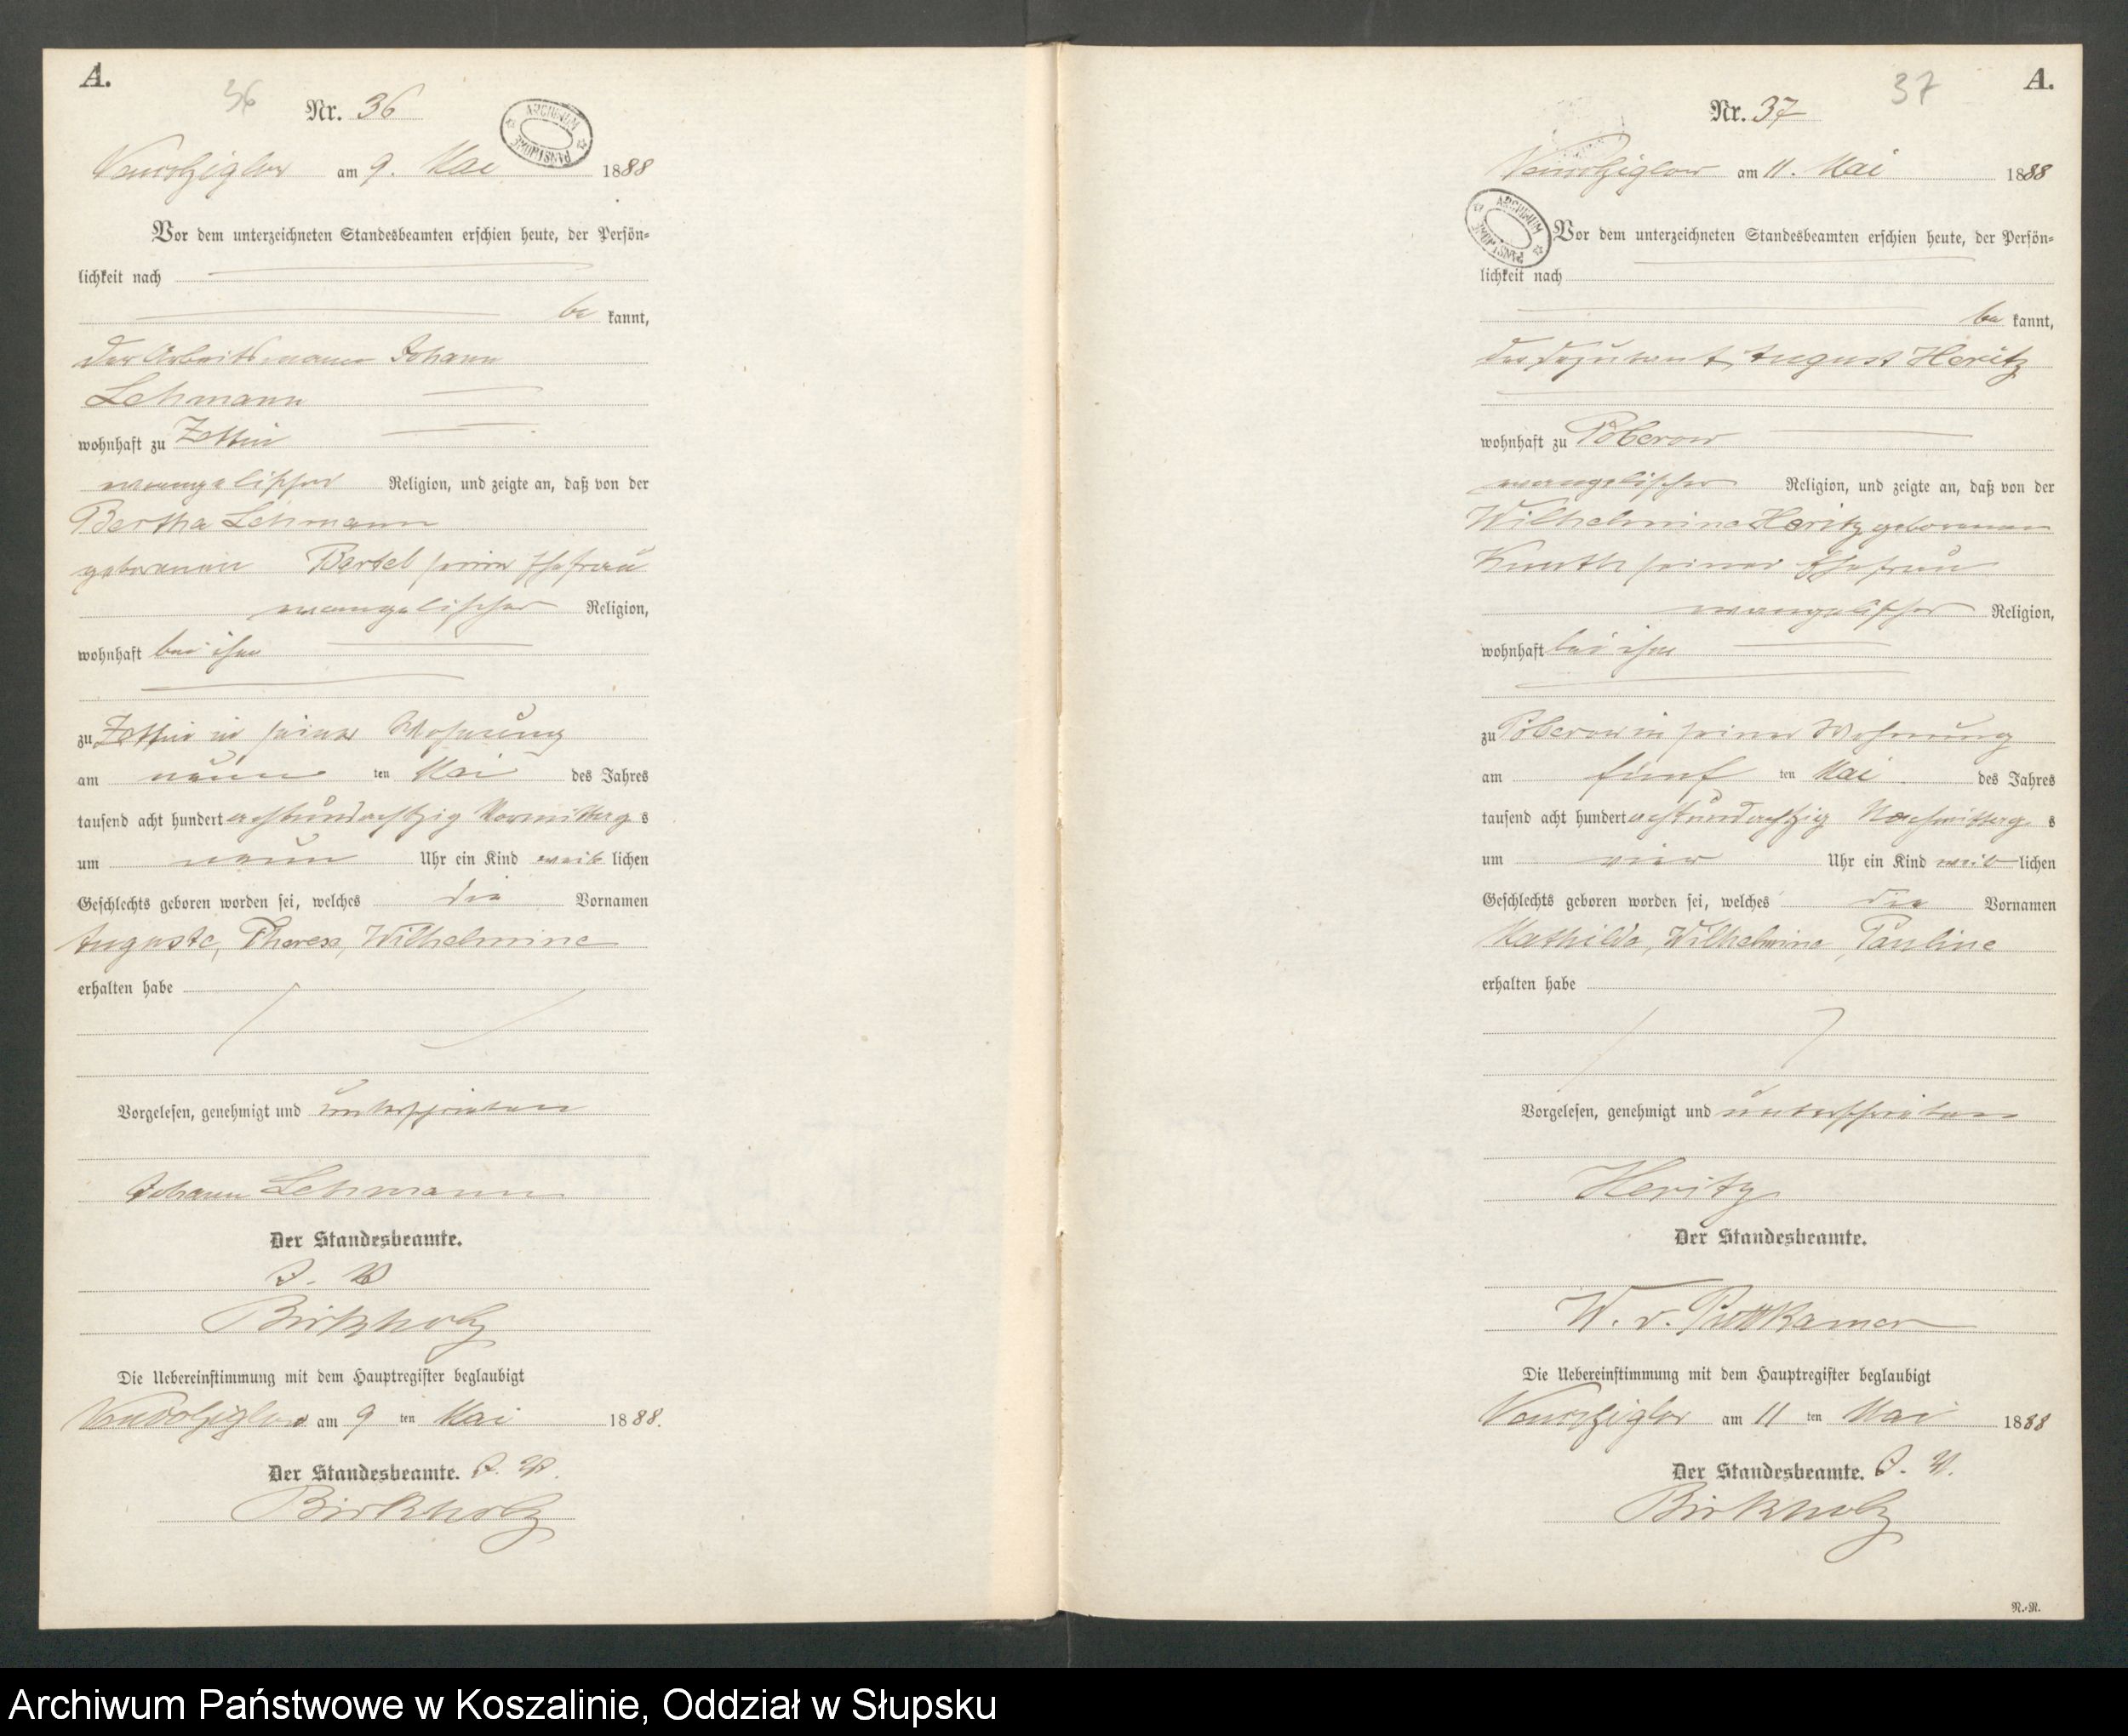 A.
36
Nr. 36
ARCHIWUM PAŃSTWOWE
am 9. Mai 1888
Vor dem unterzeichneten Standesbeamten erschien heute, der Persön-
lichkeit nach
be kannt,
der Arbeitsmann Johann
Lehmann
wohnhaft zu Zettin
evangelischer Religion, und zeigte an, daß von der
Bertha Lehmann
geborenen Bartel seiner Ehefrau
evangelischer Religion,
wohnhaft bei ihm
zu Zettin in seiner Wohnung
am neun ten Mai des Jahres
tausend acht hundert achtundachtzig Vormittag s
um neun Uhr ein Kind weib lichen
Geschlechts geboren worden sei, welches die Vornamen
Auguste, Therese, Wilhelmine
erhalten habe
Vorgelesen, genehmigt und unterschrieben
Johann Lehmann
Der Standesbeamte.
J. V.
Birkholz
Die Uebereinstimmung mit dem Hauptregister beglaubigt
am 9 ten Mai 1888.
Der Standesbeamte. J. V.
Birkholz
A.
37
Nr. 37
ARCHIWUM PAŃSTWOWE
am 11. Mai 1888
Vor dem unterzeichneten Standesbeamten erschien heute, der Persön-
lichkeit nach
be kannt,
der Deputant August Heritz
wohnhaft zu Poberow
evangelischer Religion, und zeigte an, daß von der
Wilhelmine Heritz geborenen
Knuth seiner Ehefrau
evangelischer Religion,
wohnhaft bei ihm
zu Poberow in seiner Wohnung
am fünf ten Mai des Jahres
tausend acht hundert achtundachtzig Nachmittag s
um vier Uhr ein Kind weib lichen
Geschlechts geboren worden sei, welches die Vornamen
Mathilde, Wilhelmine, Pauline
erhalten habe
Vorgelesen, genehmigt und unterschrieben
Heritz
Der Standesbeamte.
W. v. Puttkamer
Die Uebereinstimmung mit dem Hauptregister beglaubigt
am 11 ten Mai 1888
Der Standesbeamte. J. V.
Birkholz
R.-R.
Archiwum Państwowe w Koszalinie, Oddział w Słupsku